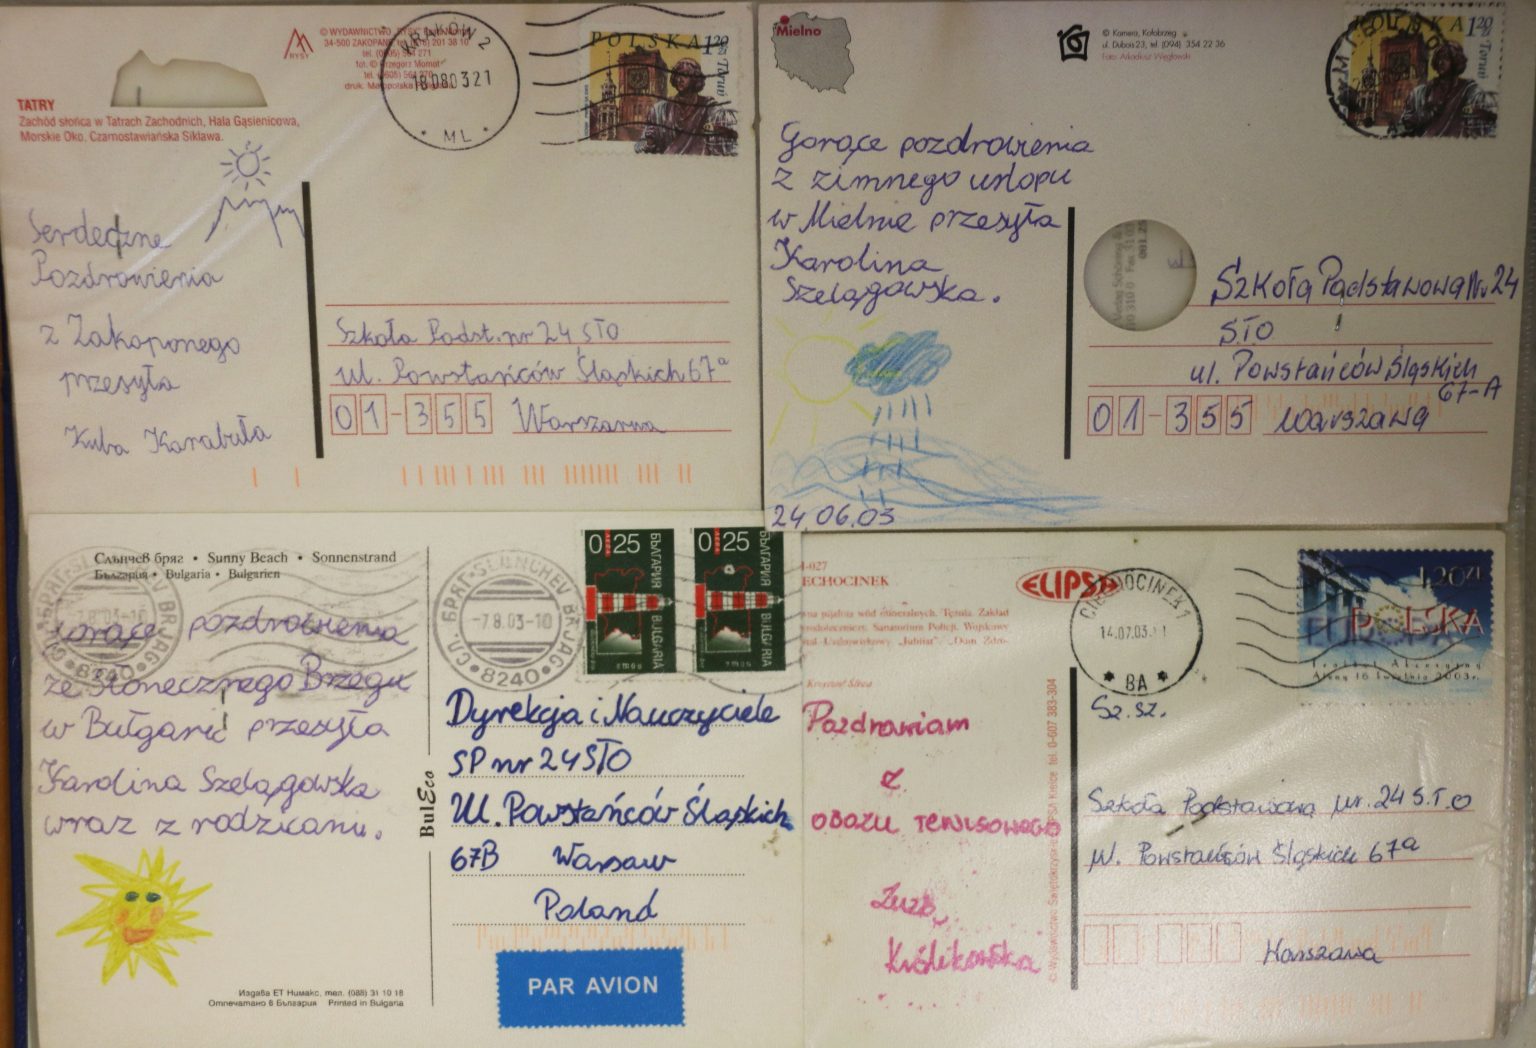 © WYDAWNICTWO
RYSY
TATRY
Zachód słońca w Tatrach Zachodnich, Hala Gąsienicowa,
Morskie Oko, Czarnostawiańska Siklawa.
KRAKÓW 2
180803 21
* ML *
POLSKA 120
Toruń
Serdeczne
Pozdrowienia
z Zakoponego
przesyła
Kuba Karabuła
Szkoła Podst. nr 24 STO
ul. Powstańców Śląskich 67a
01-355 Warszawa
Mielno
© Kamera, Kołobrzeg
ul. Dubois 23, tel. (094) 354 22 36
Foto: Arkadiusz Węglowski
POLSKA 120
Toruń
Gorące pozdrowienia
z zimnego urlopu
w Mielnie przesyła
Karolina
Szelągowska.
24.06.03
Szkoła Podstawowa Nr 24
STO
ul. Powstańców Śląskich
67-A
01-355 Warszawa
Слънчев бряг • Sunny Beach • Sonnenstrand
България • Bulgaria • Bulgarien
Gorące pozdrowienia
ze Słonecznego Brzegu
w Bułgarii przesyła
Karolina Szelągowska
wraz z rodzicami.
Издава ЕТ Нимакс, тел. (088) 31 10 18
Отпечатано в България Printed in Bulgaria
BulEco
СЛ. БРЯГ-SLUNCHEV BRJAG
-7.8.03-10
•8240•
0.25 БЪЛГАРИЯ BULGARIA
0.25 БЪЛГАРИЯ BULGARIA
Dyrekcja i Nauczyciele
SP nr 24 STO
Ul. Powstańców Śląskich
67B Warsaw
Poland
PAR AVION
I-027
ECHOCINEK
ELIPSA
Krzysztof
Pozdrawiam
z
obozu tenisowego
Zuza
Królikowska
tel. 0-607 383-304
CIECHOCINEK 1
14.07.03
* 8A *
1,20ZŁ
POLSKA
Traktat Akcesyjny
Ateny 16 kwietnia 2003r.
Sz.Sz.
Szkoła Podstawowa nr. 24 S.T.O
ul. Powstańców Śląskich 67a
Warszawa